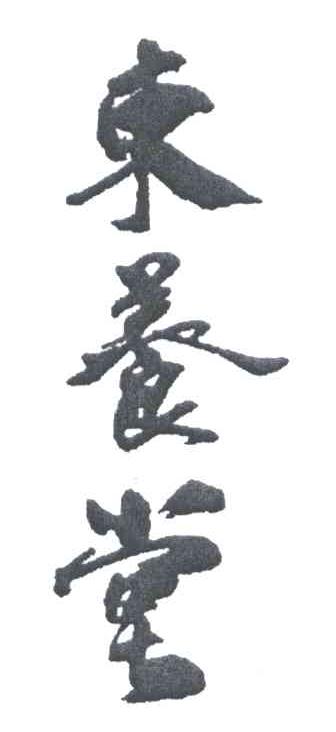 東養堂